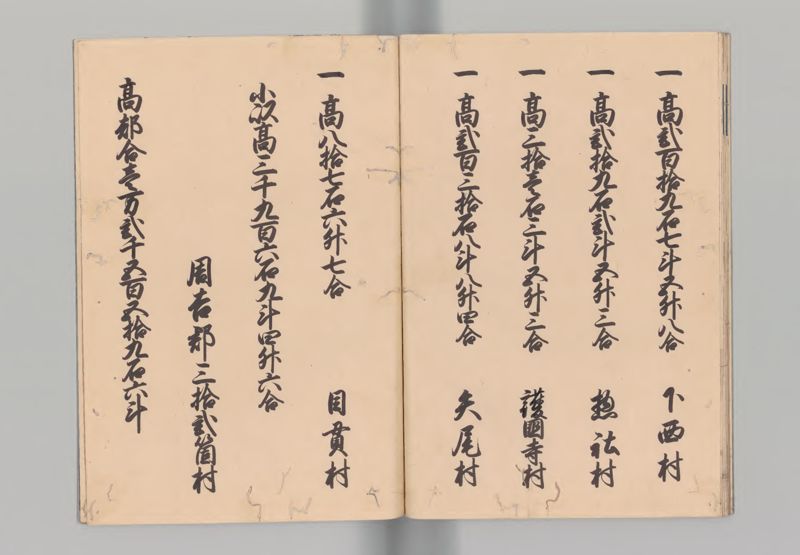 一 高弐百拾九石七斗五升八合 下西村
一 高弐拾九石弐斗五升三合 惣社村
一 高三拾壱石三斗五升三合 護國寺村
一 高弐百三拾石八斗八升四合 矢尾村
一 高八拾七石六升七合 目貫村
小以高三千九百六石九斗四升六合
周吉郡三拾弐箇村
高都合壱万弐千五百五拾九石六斗